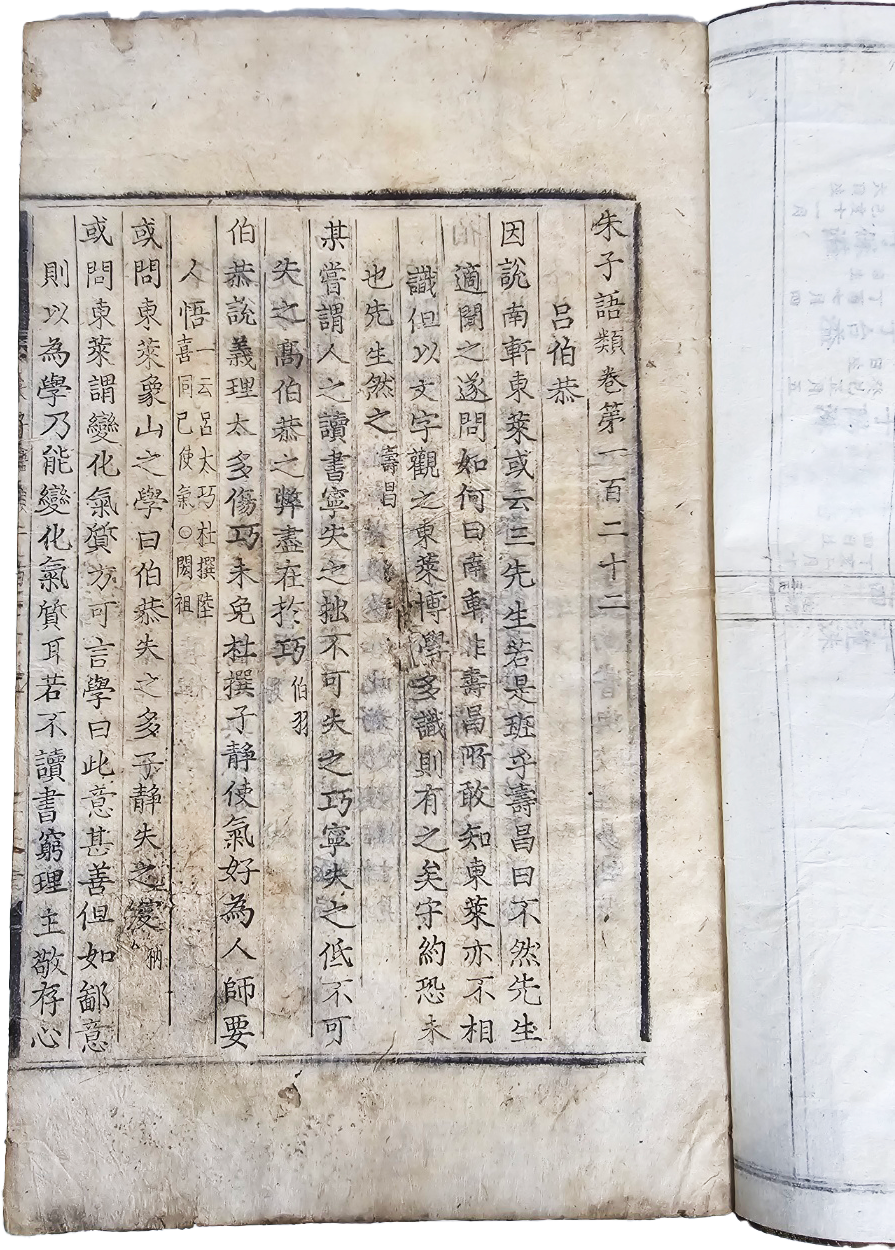 朱子語類卷第一百二十二
呂伯恭
因說南軒東萊或云二先生若是班乎壽昌曰不然先生
適聞之遂問如何曰南軒非壽昌所敢知東萊亦不相
識但以文字觀之東萊博學多識則有之矣守約恐未
也先生然之壽昌
某嘗謂人之讀書寧失之拙不可失之巧寧失之低不可
失之高伯恭之弊盡在於巧伯羽
伯恭說義理太多傷巧未免杜撰子靜使氣好為人師要
人悟一云呂太巧杜撰陸
喜同已使氣○閎祖
或問東萊象山之學曰伯恭失之多子靜失之
或問東萊謂變化氣質方可言學曰此意甚善但如鄙意
則以為學乃能變化氣質耳若不讀書窮理主敬存心